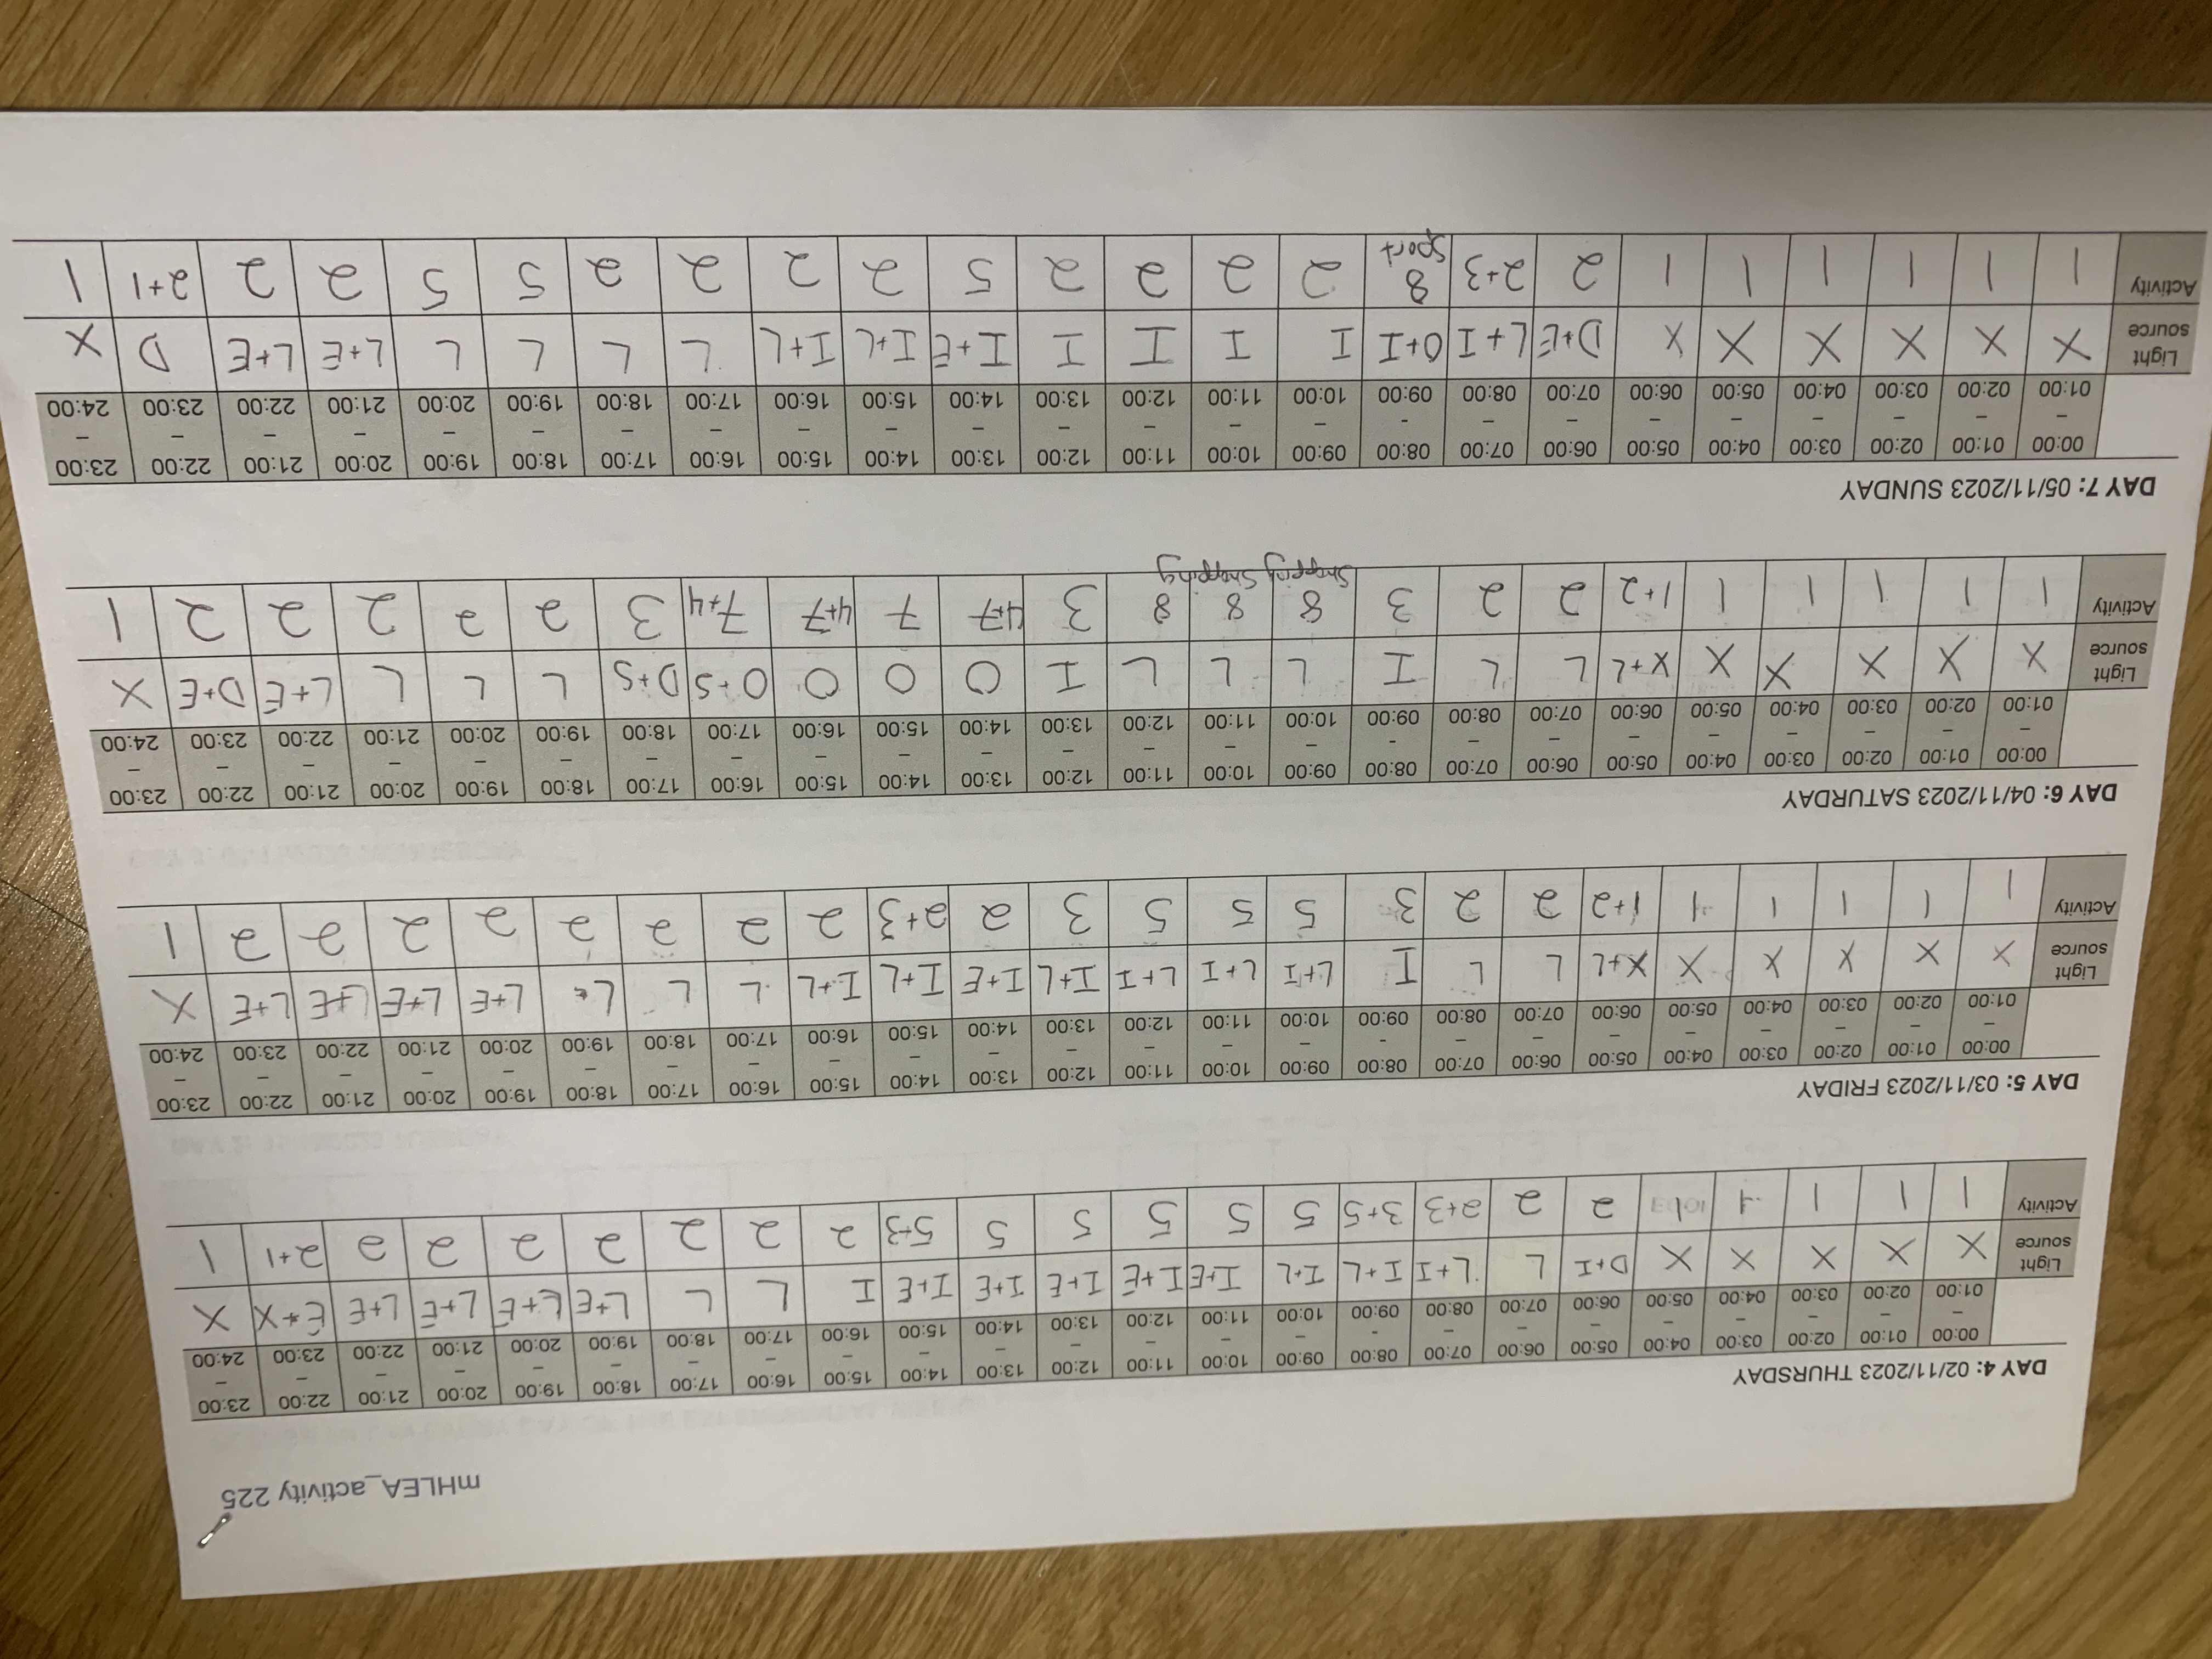 mHLEA_activity 225
DAY 4: 02/11/2023 THURSDAY
00:00 – 01:00 01:00 – 02:00 02:00 – 03:00 03:00 – 04:00 04:00 – 05:00 05:00 – 06:00 06:00 – 07:00 07:00 – 08:00 08:00 - 09:00 09:00 – 10:00 10:00 – 11:00 11:00 – 12:00 12:00 – 13:00 13:00 – 14:00 14:00 – 15:00 15:00 – 16:00 16:00 – 17:00 17:00 – 18:00 18:00 – 19:00 19:00 – 20:00 20:00 – 21:00 21:00 – 22:00 22:00 – 23:00 23:00 – 24:00
Light source X X X X X D+I L L+I I+L I+L I+E I+E I+E I+E I+E I L L L+E L+E L+E L+E E+X X
Activity 1 1 1 1 2 2 2+3 3+5 5 5 5 5 5 5+3 2 2 2 2 2 2 2 2+1 1
DAY 5: 03/11/2023 FRIDAY
00:00 – 01:00 01:00 – 02:00 02:00 – 03:00 03:00 – 04:00 04:00 – 05:00 05:00 – 06:00 06:00 – 07:00 07:00 – 08:00 08:00 - 09:00 09:00 – 10:00 10:00 – 11:00 11:00 – 12:00 12:00 – 13:00 13:00 – 14:00 14:00 – 15:00 15:00 – 16:00 16:00 – 17:00 17:00 – 18:00 18:00 – 19:00 19:00 – 20:00 20:00 – 21:00 21:00 – 22:00 22:00 – 23:00 23:00 – 24:00
Light source X X X X X X+L L L I L+I L+I L+I I+L I+E I+L I+L L L L+ L+E L+E L+E L+E X
Activity 1 1 1 1 1 1+2 2 2 3 5 5 5 3 2 2+3 2 2 2 2 2 2 2 2 1
DAY 6: 04/11/2023 SATURDAY
00:00 – 01:00 01:00 – 02:00 02:00 – 03:00 03:00 – 04:00 04:00 – 05:00 05:00 – 06:00 06:00 – 07:00 07:00 – 08:00 08:00 - 09:00 09:00 – 10:00 10:00 – 11:00 11:00 – 12:00 12:00 – 13:00 13:00 – 14:00 14:00 – 15:00 15:00 – 16:00 16:00 – 17:00 17:00 – 18:00 18:00 – 19:00 19:00 – 20:00 20:00 – 21:00 21:00 – 22:00 22:00 – 23:00 23:00 – 24:00
Light source X X X X X X+L L L I L L L I O O O O+S D+S L L L L+E D+E X
Activity 1 1 1 1 1 1+2 2 2 3 8 8 8 3 4+7 7 4+7 7+4 3 2 2 2 2 2 1
Shopping Shopping
DAY 7: 05/11/2023 SUNDAY
00:00 – 01:00 01:00 – 02:00 02:00 – 03:00 03:00 – 04:00 04:00 – 05:00 05:00 – 06:00 06:00 – 07:00 07:00 – 08:00 08:00 - 09:00 09:00 – 10:00 10:00 – 11:00 11:00 – 12:00 12:00 – 13:00 13:00 – 14:00 14:00 – 15:00 15:00 – 16:00 16:00 – 17:00 17:00 – 18:00 18:00 – 19:00 19:00 – 20:00 20:00 – 21:00 21:00 – 22:00 22:00 – 23:00 23:00 – 24:00
Light source X X X X X X D+E L+I O+I I I I I I+E I+L I+L L L L L L+E L+E D X
Activity 1 1 1 1 1 1 2 2+3 8 2 2 2 2 5 2 2 2 2 5 5 2 2 2+1 1
Sport